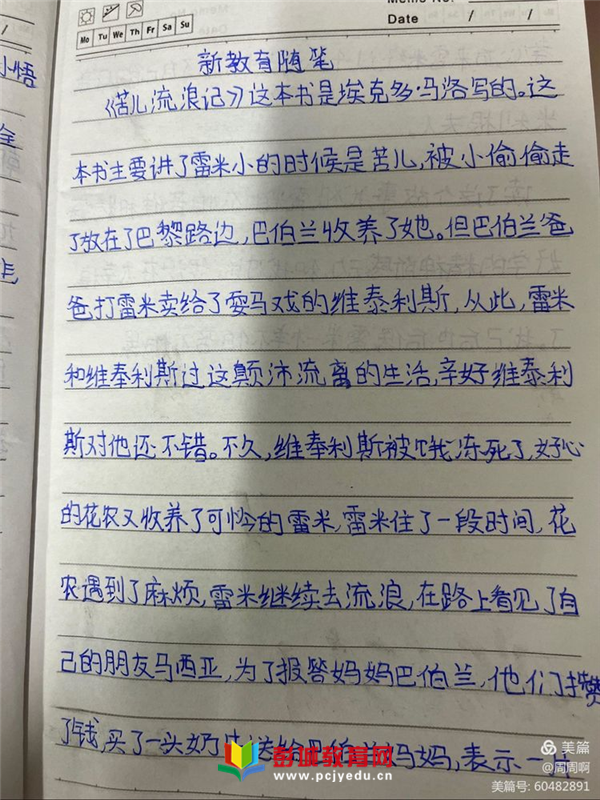 Memo No.
Mo Tu We Th Fr Sa Su
Date / /
新教育随笔
《苦儿流浪记》这本书是埃克多·马洛写的。这
本书主要讲了雷米小的时候是苦儿,被小偷偷走
了放在了巴黎路边,巴伯兰收养了她。但巴伯兰爸
爸打雷米卖给了耍马戏的维泰利斯,从此,雷米
和维泰利斯过这颠沛流离的生活,幸好维泰利
斯对他还不错。不久,维泰利斯被饿冻死了,好心
的花农又收养了可怜的雷米,雷米住了一段时间,花
农遇到了麻烦,雷米继续去流浪,在路上看见了自
己的朋友马西亚,为了报答妈妈巴伯兰,他们攒
了钱,买了一头奶 妈妈,表示一
彭城教育网
www.pcjyedu.cn
美篇
@周周啊
美篇号: 60482891
小悟